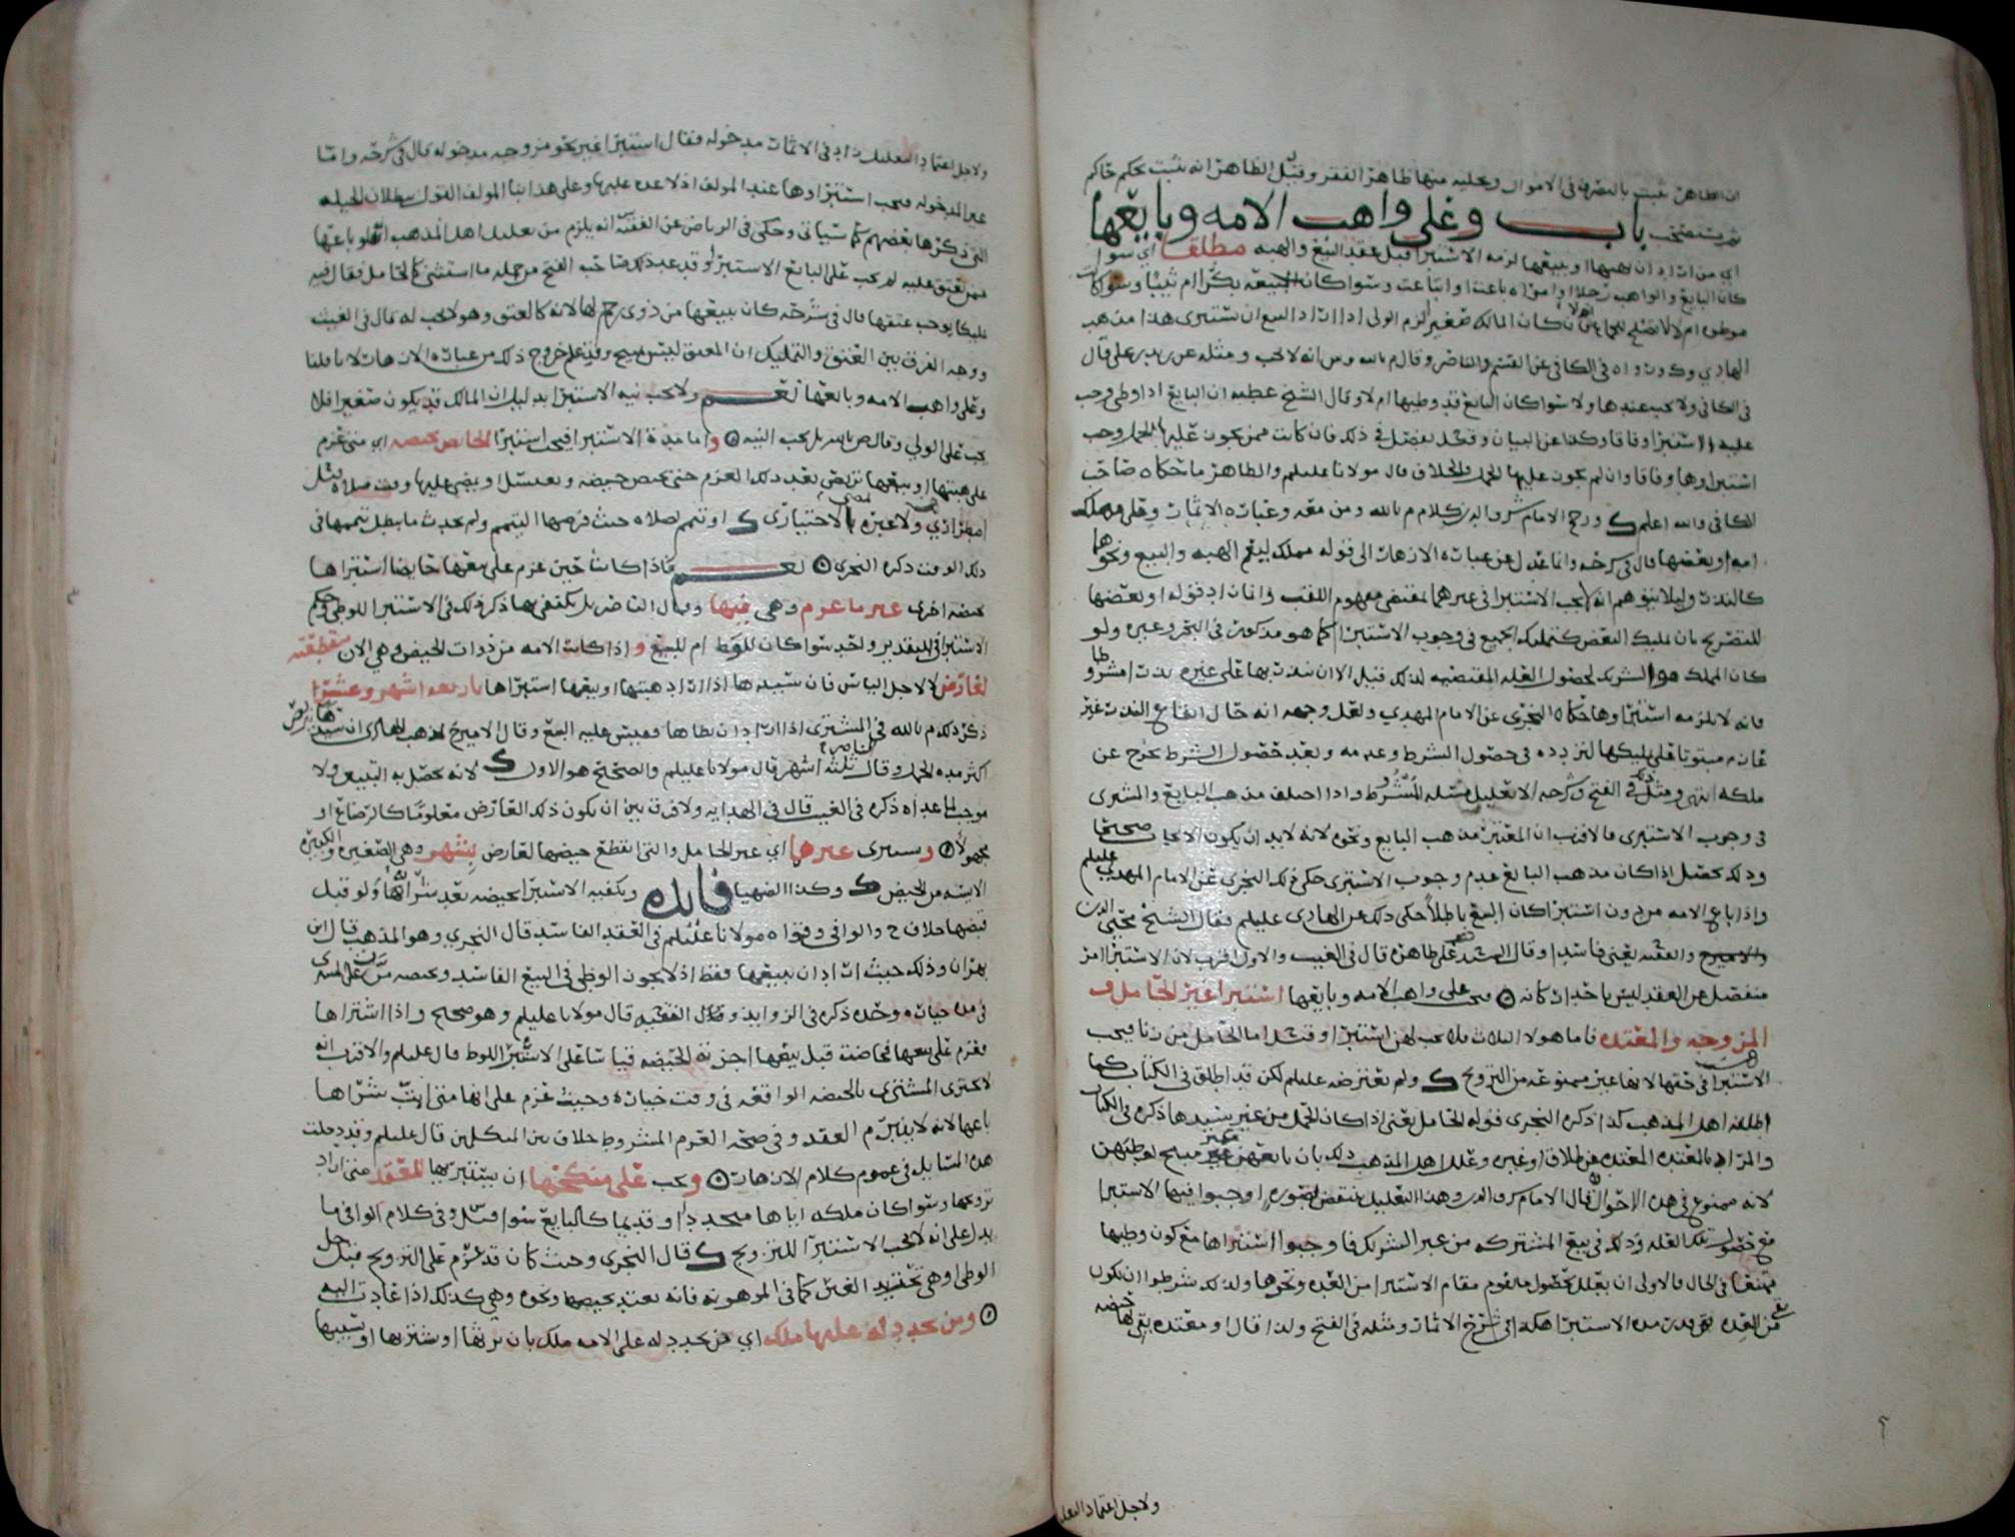 ان الظاهر ثبت بالتصرف في الاموال وتحليه منها ظاهر الفقر وقيل الظاهر انه يثبت بحكم حاكم
باب وعلى واهب الامه وبايعها
اي من اراد ان يهبها او يبيعها لزمه الاستبرا قبل عقد البيع والهبه مطلقا اي سوا
كان البايع والواهب رجلا او امراه باعت او ابتاعت وسوا كان المبيعه بكرا ام ثيبا وسوا كانت
موطوه ام لا تصلح للجماع ام لا كان المالك صغير لزم الولي اذا اراد البيع ان يستبري هذا مذهب
الهادي ورواه في الكافي عن القسم والناصر وقال م بالله وس انه لا يجب ومثله عن زيد بن علي قال
في الكافي ولا يجب عندها ولا سوا كان البايع قد وطيها ام لا وقال الشيخ عطيه ان البايع اذا وطي وجب
عليه الاستبرا وفاقا وكذا عن البيان وقيل يفصل في ذلك فان كانت ممن يجوز عليها الحمل وجب
استبراوها وفاقا وان لم يجوز عليها الحمل فالخلاف قال مولانا عليلم والظاهر ما حكاه صاحب
الكافي والله اعلم ورجح الامام شرف الدين كلام م بالله ومن معه وعباره الاثمار وعلى مملك
امه او بعضها قال في شرحه وانما عدل عن عباره الازهار الى قوله مملك ليعم الهبه والبيع ونحوهما
كالنذر وليلا يتوهم انه لا يجب الاستبرا في غيرهما بمقتضى مفهوم اللقب وافاد بقوله او بعضها
للتصريح بان تمليك البعض كتمليك الجميع في وجوب الاستبرا كما هو مذكور في البحر وغيره ولو
كان المملك هو الشريك لحصول العله المقتضيه لذلك قيل الا ان نذر بها على غيره نذرا مشروطا
فانه لا يلزمه استبراوها حكاه النجري عن الامام المهدي ولعل وجهه انه حال ايقاع النذر غير
عازم مبتوتا على تمليكها لتردده في حصول الشرط وعدمه وبعد حصول الشرط تخرج عن
ملكه انتهى ومثل ذلك في الفتح وشرحه الا تعليل مسله المشروط واذا اختلف مذهب البايع والمشتري
في وجوب الاستبرى فالاقرب ان المعتبر مذهب البايع ونحوه لانه لا بد ان يكون الايجاب صحيحا
وذلك يحصل اذا كان مذهب البايع عدم وجوب الاستبرى حكى ذلك النجري عن الامام المهدي عليلم
واذا باع الامه من دون استبرا كان البيع باطلا حكى ذلك عن الهادي عليلم فقال الشيخ محيي الدين
والامير ح والفقيه يعني فاسدا وقال السيد على ظاهره قال في الغيث والاول اقرب لان الاستبرا امر
منفصل عن العقد ليس باحد اركانه فيجب على واهب الامه وبايعها استبرا غير الحامل و
المزوجه والمعتده فاما هولا الثلاث فلا يجب لهن استبرا وقيل اما الحامل من زنا فيجب
الاستبرا في حقها لانها غير ممنوعه من التزويج ولم يعترضه عليلم لكن قد اطلق في الكتاب كما
اطلقه اهل المذهب كذا ذكره النجري قوله الحامل يعني اذا كان الحمل من غير سيدها ذكره في الكتاب
والمراد بالمعتده المعتده عن طلاق او غيره وعلل اهل المذهب ذلك بان بايعهن غير مبيح لوطيهن
لانه ممنوع في هذه الاحوال قال الامام شرف الدين وهذا التعليل ينتقض بصوره اوجبوا فيها الاستبرا
مع حصول تلك العله وذلك في بيع المشتركه من غير الشريك فاوجبوا استبراها مع كون وطيها
ممتنعا في الحال فالاولى ان يعلل بحصول ما يقوم مقام الاستبرا من العده ونحوها ولذلك شرطوا ان تكون
من العده بقي قدر مده الاستبرا هكذا في شرح الاثمار ومثله في الفتح ولذا قال او معتده بقي لها حيضه
ولاجل اعتماد التعليل
ولاجل اعتماد التعليل زاد في الاثمار مدخوله فقال استبرا غير نحو مزوجه مدخوله قال في شرحه واما
غير المدخوله فيجب استبراوها عند المولف اذ لا عده عليها وعلى هذا بنا المولف القول ببطلان الحيله
التي ذكرها بعضهم كما سياتي وحكى في الرياض عن الفقيه س انه يلزم من تعليل اهل المذهب انه لو باعها
ممن تعتق عليه لم يجب على البايع الاستبرا وقد عد ذلك صاحب الفتح من جمله ما استثنى كالحامل فقال فيه
تمليكا يوجب عتقها قال في شرحه كان يبيعها من ذوي رحم لها لانه كالعتق وهو لا يجب له قال في الغيث
ووجه الفرق بين العتق والتمليك ان المعتق ليس مبيح وقد علم خروج ذلك من عباره الازهار لانا قلنا
وعلى واهب الامه وبايعها نعم ولا يجب نيه الاستبرا بدليل ان المالك قد يكون صغيرا فلا
يجب على الولي وقال ص بالله بل يجب النيه واما مده الاستبرا فيجب استبرا الحايض بحيضه اي متى عزم
على هبتها او بيعها تربص بعد ذلك العزم حتى تحيض حيضه وتغتسل او يمضي عليها وقت صلاه قيل
اضطراري ولا عبره بالاختياري او تتيمم لصلاه حيث فرضها التيمم ولم يحدث ما يبطل تيممها في
ذلك الوقت ذكره النجري نعم فاذا كانت حين عزم على بيعها حايضا استبراها
بحيضه اخرى غير ما عزم وهي فيها وقال الناصر بل يكتفي بها ذكر ذلك في الاستبرا للوطي وحكم
الاستبرا في التقدير واحد سوا كان للوطي ام للبيع و اذا كانت الامه من ذوات الحيض وهي الان منقطعته
لعارض لا لاجل الياس فان سيدها اذا اراد هبتها او بيعها استبراها باربعه اشهر وعشرا
ذكر ذلك م بالله في المشتري اذا اراد ان يطاها فقيس عليه البيع وقال الامير ح مذهب الهادي ان سيدها يتربص
اكثر مده الحمل وقال الناصر ثلثه اشهر قال مولانا عليلم والصحيح هو الاول لانه تحصل به التبيين ولا
موجب لما عداه ذكره في الغيث قال في الهدايه ولا فرق بين ان يكون ذلك العارض معلوما كالرضاع او
مجهولا و يستبرى غيرها اي غير الحامل والتي انقطع حيضها لعارض بشهر وهي الصغيره والكبيره
الايسه من الحيض وكذا الضهيا فايده ويكفيه الاستبرا بحيضه بعد شرائها ولو قبل
قبضها خلاف ح والوافي وقواه مولانا عليلم في العقد الفاسد قال النجري وهو المذهب قال ابن
بهران وذلك حيث اراد ان يبيعها فقط اذ لا يجوز الوطي في البيع الفاسد وبحيضه مرت على المشتري
في مده خياره وحده ذكره في الزوايد وقال الفقيه قال مولانا عليلم وهو صحيح واذا اشتراها
فعزم على بيعها فحاضت قبل بيعها اجزته الحيضه قياسا على الاستبرا للوطي قال عليلم والاقرب انه
لا يجتزي المشتري بالحيضه الواقعه في وقت خياره وحيث عزم على انها متى انبت شراها
باعها لانه لا يتبرم العقد وفي صحه العزم المشروط خلاف بين المتكلمين قال عليلم وقد دخلت
هذه المسايل في عموم كلام الازهار ويجب على منكحها ان يستبريها للعقد متى اراد
تزويجها وسوا كان ملكه اياها متجددا او قديما كالبايع سوا قيل وفي كلام الوافي ما
يدل على انه لا يجب الاستبرا للتزويج قال النجري وحيث كان قد عزم على التزويج قبل حل
الوطي او هي تحت يد الغير كما في الموهوبه فانه يعتد بحيضها ونحوه وهي كذلك اذا عادت اليه
ومن تجدد له عليها ملك اي من تجدد له على الامه ملك بان يرثها او يشتريها او يتهبها